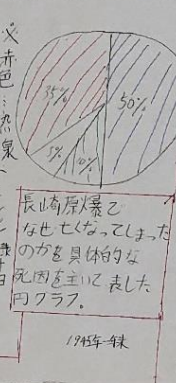 ※赤色…熱線
35%
50%
5%
10%
長崎原爆で
なぜ亡くなってしまった
のかを具体的な
死因を主いて表した
円グラフ。
1945年末